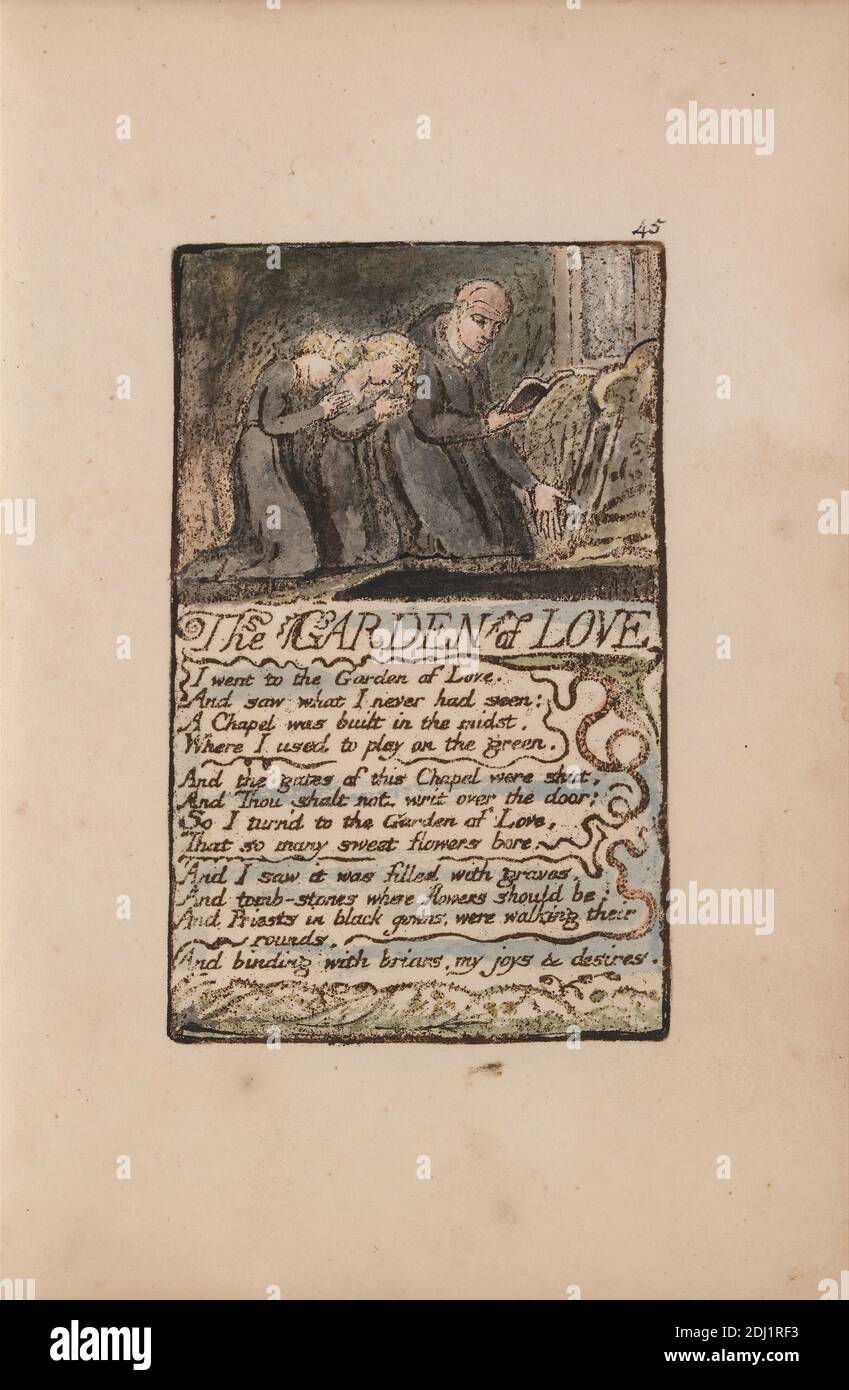 45
The GARDEN of LOVE
I went to the Garden of Love.
And saw what I never had seen:
A Chapel was built in the midst,
Where I used to play on the green.
And the gates of this Chapel were shut,
And Thou shalt not. writ over the door;
So I turnd to the Garden of Love,
That so many sweet flowers bore.
And I saw it was filled with graves,
And tomb-stones where flowers should be:
And Priests in black gowns, were walking their
rounds,
And binding with briars, my joys & desires.
alamy
alamy
alamy
a
a
a
a
a
a
alamy
Image ID: 2DJ1RF3
www.alamy.com